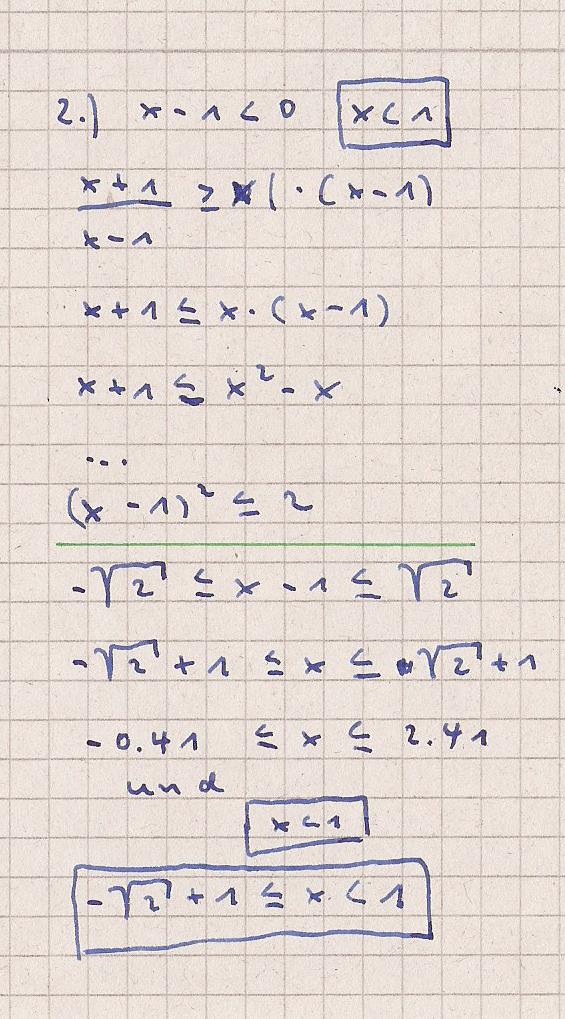 2.) x - 1 < 0 x < 1
x + 1 / x - 1 ≥ x | · (x - 1)
x + 1 ≤ x · (x - 1)
x + 1 ≤ x² - x
...
(x - 1)² ≤ 2
-√2 ≤ x - 1 ≤ √2
-√2 + 1 ≤ x ≤ √2 + 1
-0.41 ≤ x ≤ 2.41
und
x < 1
-√2 + 1 ≤ x < 1